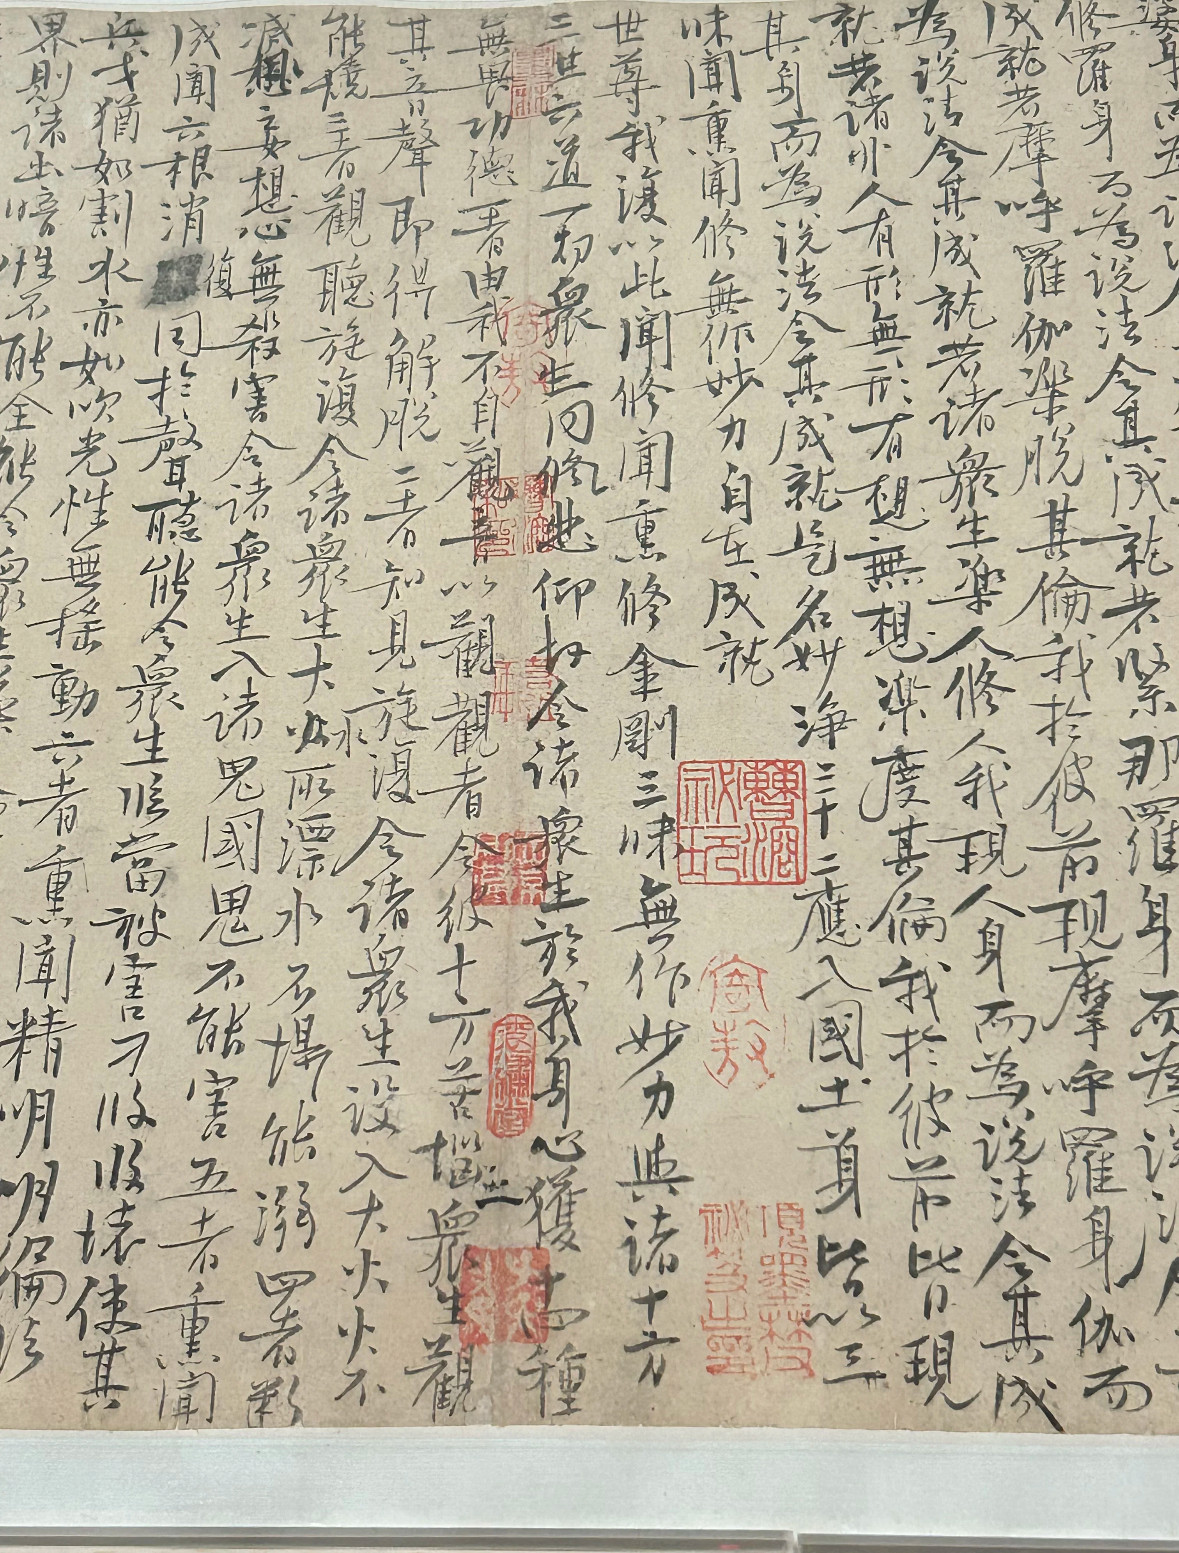 婆身而為說
修羅身而為說法令其成就若緊那羅身而為說法令
成就若摩呼羅伽樂脫其倫我於彼前現摩呼羅身伽而
為說法令其成就若諸眾生樂人修人我現人身而為說法令其成
就若諸非人有形無形有想無想樂度其倫我於彼前皆現
其身而為說法令其成就是名妙淨三十二應入國土身皆以三
昧聞熏聞修無作妙力自在成就
世尊我復以此聞修聞熏修金剛三昧無作妙力與諸十方
三世六道一切眾生同悲仰故令諸眾生於我身心獲十四種
無畏功德一者由我不自觀音以觀觀者令彼十方苦惱眾生觀
其音聲即得解脫二者知見旋復令諸眾生設入大火火不
能燒三者觀聽旋復令諸眾生大水所漂水不能溺四者斷
滅妄想心無殺害令諸眾生入諸鬼國鬼不能害五者熏聞
成聞六根消復同於聲聽能令眾生臨當被害刀段段壞使其
兵戈猶如割水亦如吹光性無搖動六者熏聞精明明徧法
界則諸幽暗性不能全能令眾生
曹溶秘玩
項墨林父秘笈之印